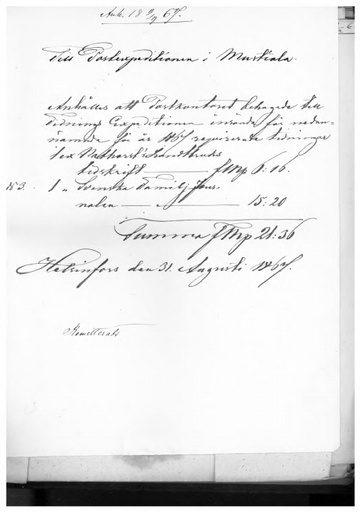 Ank. 18 9/9 67.
Till Postexpeditionen i Mustiala.
Anhålles att Postkontoret behagade till
Tidnings Expeditionen insända för nedan-
nämnde för år 1867 reqvirerade tidningar
1 ex Nathorst's Landtbruks
tidskrift — FMrp 6: 16.
1 " Svenska Familj Jour-
nalen — " — 15: 20
Summa FMrp 21: 36
Helsinfors den 31. Augusti 1867.